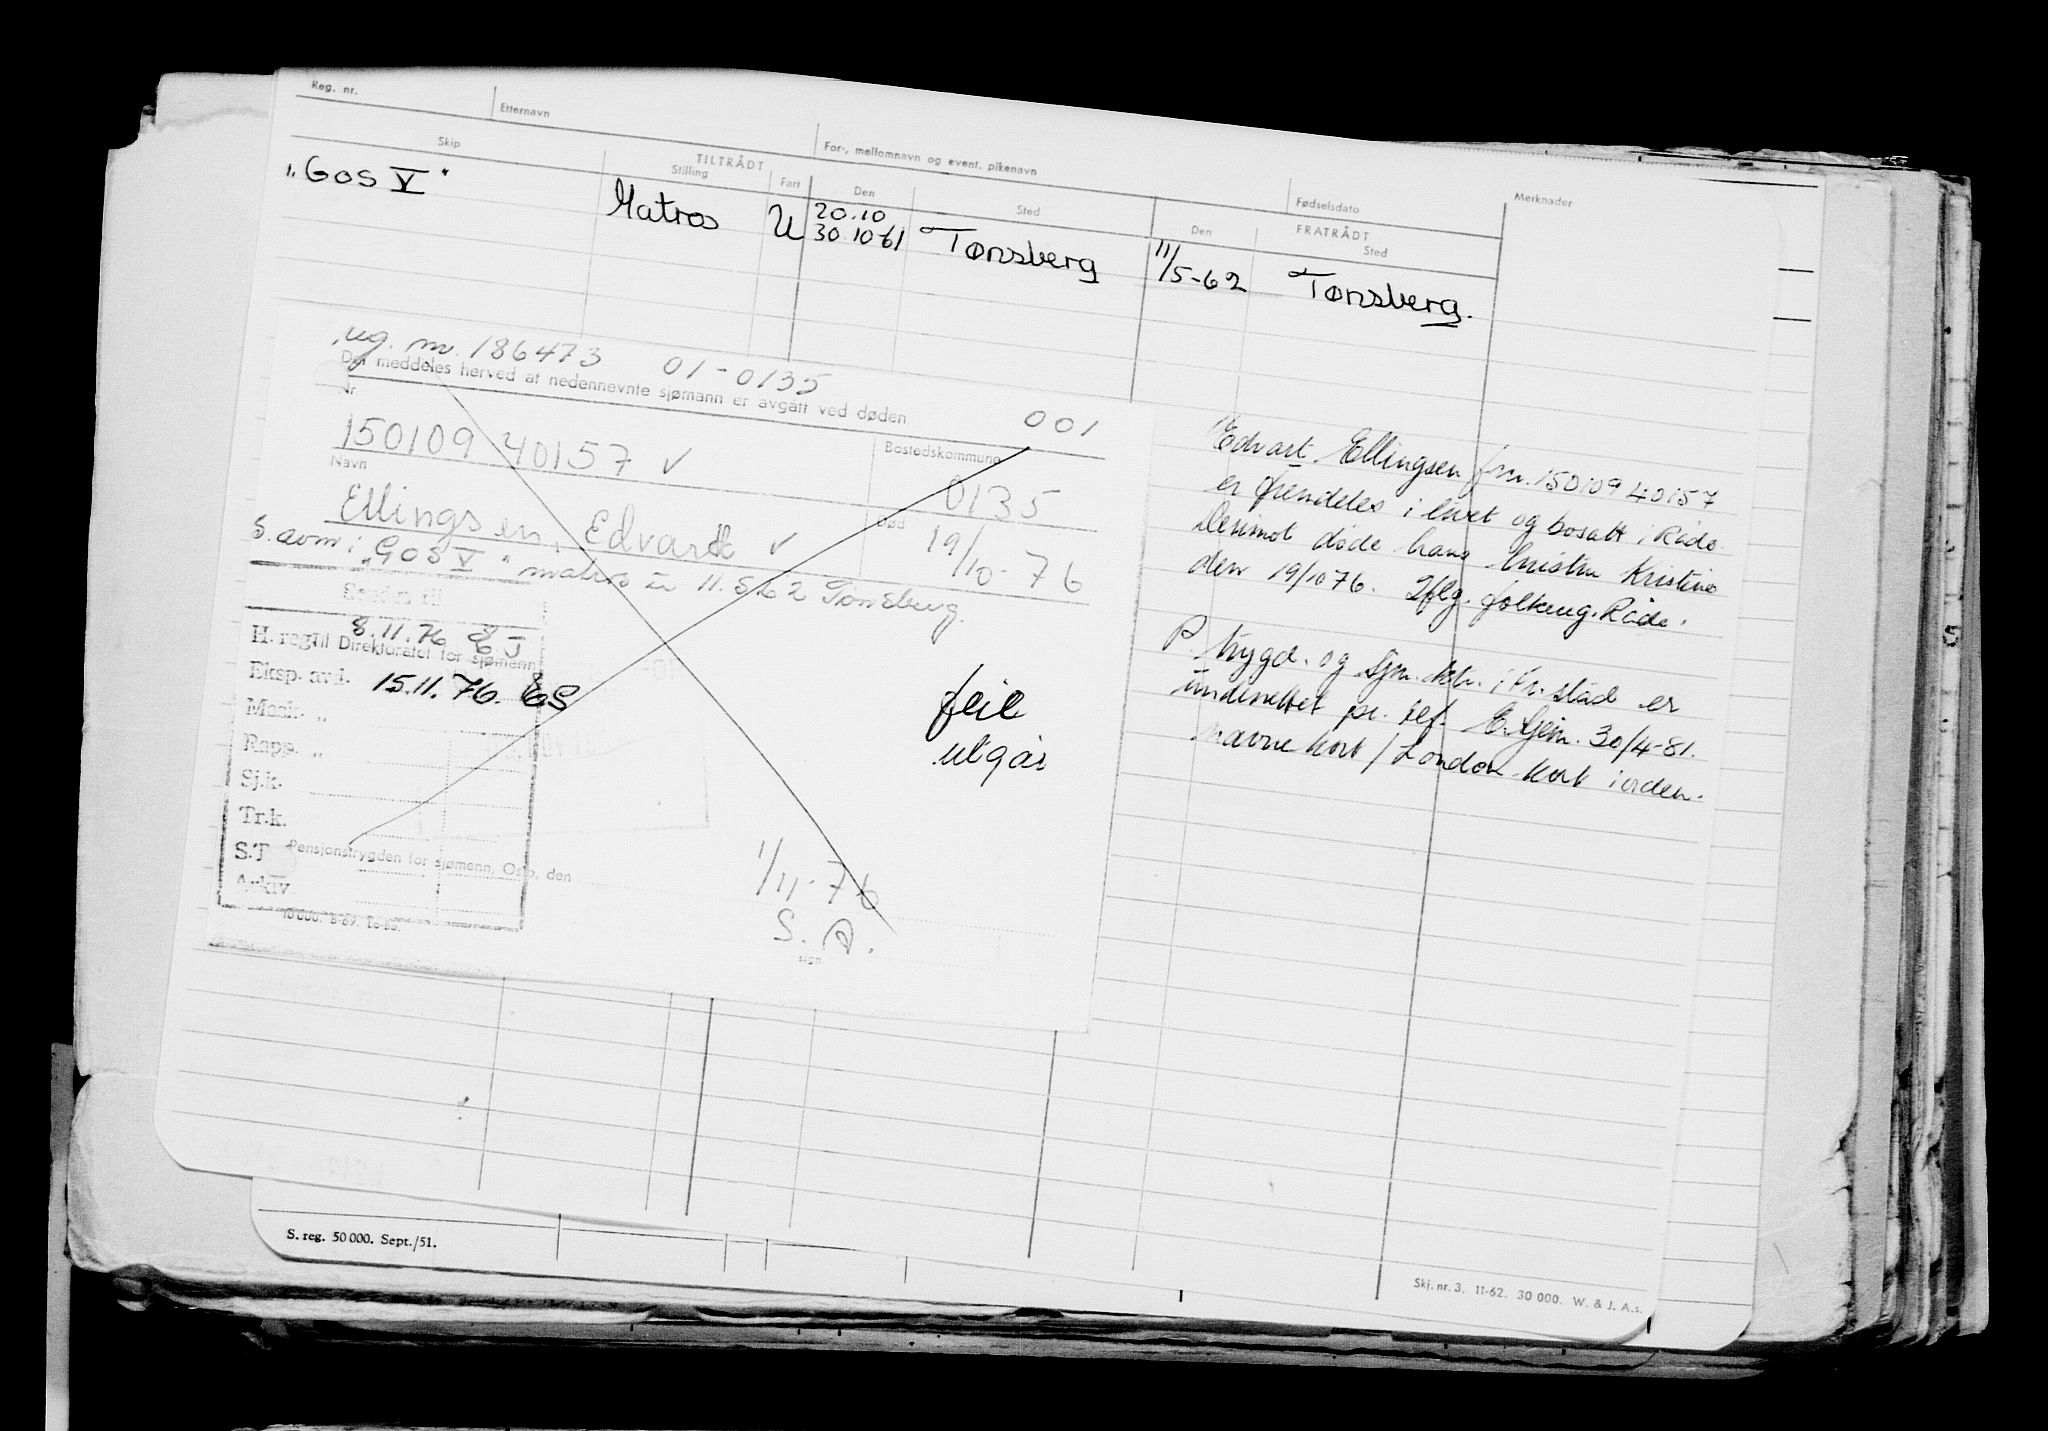 Reg. nr.
Etternavn
For-, mellomnavn og event. pikenavn
Fødselsdato
Merknader
Skip
TILTRÅDT
Stilling
Fart
Den
Sted
FRATRÅDT
Den
Sted
„GOS V"
Matros
U
20.10
30.10 61
Tønsberg
11/5-62
Tønsberg.
reg. nr. 186473 01-0135
Det meddeles herved at nedennevnte sjømann er avgått ved døden
001
Nr
150109 40157 ✓
Bostedskommune
0135
Navn
Ellingsen, Edvart ✓
Død
19/10-76
S. avm: „GOS V" matros u 11.5.62 Tønsberg.
Sendes til
8.11.76
H. reg.
Til Direktoratet for sjømenn
Eksp. avd.
15.11.76.
Mask. „
Rapp. „
Sj.k.
Tr.k.
S.T
Arkiv.
feil
utgår
Pensjonstrygden for sjømenn, Oslo, den
1/11-76
sign.
10 000. 8-69. Lo-bo.
Edvart Ellingsen fnr. 150109 40157
er fremdeles i livet og bosatt i Råde.
Derimot døde hans hustru Kristine
den 19/10 76. Iflg. folkereg. Råde.
P. trygd. og sjm.ktr. i Fr.stad er
underrettet pr. tlf. 30/4-81.
navne kort / London-kort i orden.
S. reg. 50 000. Sept./51.
Skj. nr. 3. 11-62. 30 000. W. & J. A.s.